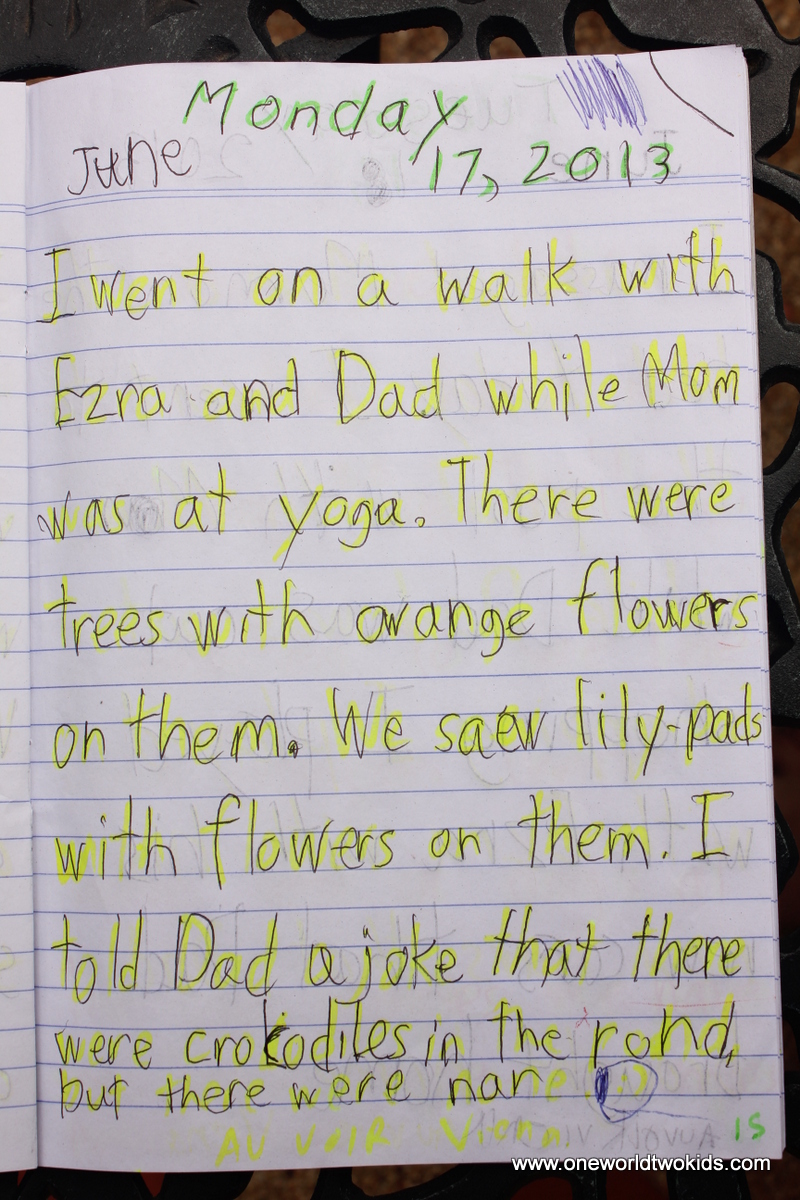 Monday
June 17, 2013
I went on a walk with
Ezra and Dad while Mom
was at yoga. There were
trees with orange flowers
on them. We saw lily-pads
with flowers on them. I
told Dad a joke that there
were crokodiles in the pond,
but there were nane
AU VOIR
15
www.oneworldtwokids.com